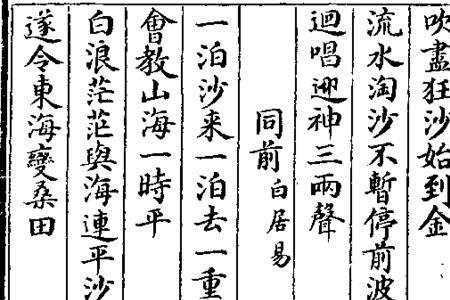 吹盡狂沙始到金
流水淘沙不暫停前波
迴唱迎神三兩聲
同前 白居易
一泊沙来一泊去一重
會教山海一時平
白浪茫茫與海連平沙
遂令東海變桑田